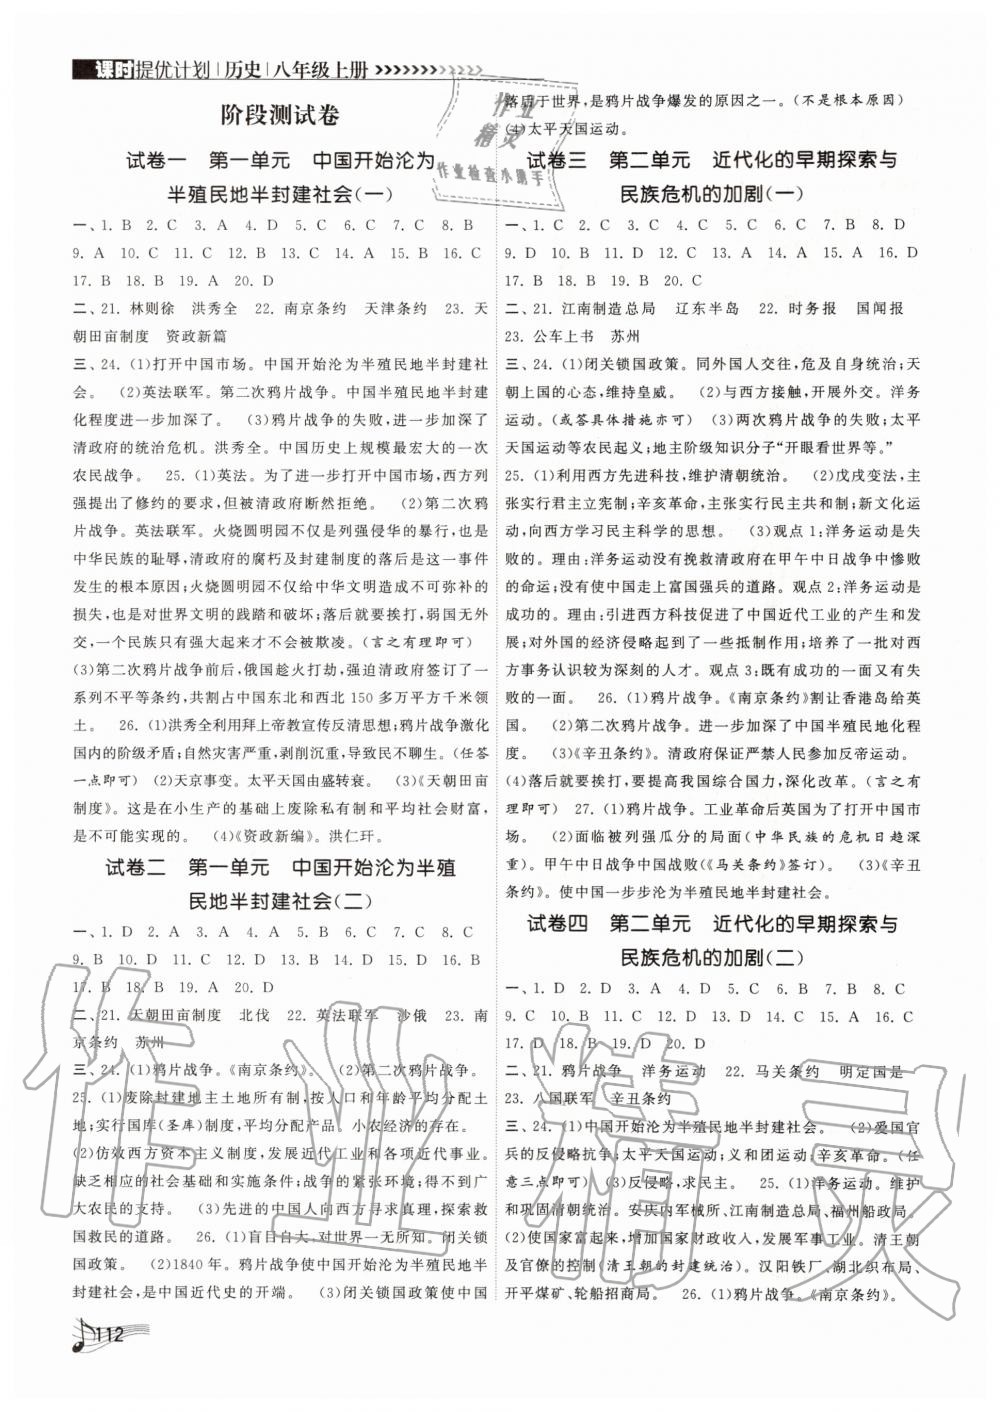 课时提优计划|历史|八年级上册
阶段测试卷
试卷一 第一单元 中国开始沦为
半殖民地半封建社会(一)
一、1. B 2. C 3. A 4. D 5. C 6. C 7. C 8. B
9. A 10. C 11. C 12. B 13. C 14. A 15. B 16. C
17. B 18. B 19. A 20. D
二、21. 林则徐 洪秀全 22. 南京条约 天津条约 23. 天
朝田亩制度 资政新篇
三、24. (1)打开中国市场。中国开始沦为半殖民地半封建社
会。 (2)英法联军。第二次鸦片战争。中国半殖民地半封建
化程度进一步加深了。 (3)鸦片战争的失败,进一步加深了
清政府的统治危机。洪秀全。中国历史上规模最宏大的一次
农民战争。 25. (1)英法。为了进一步打开中国市场,西方列
强提出了修约的要求,但被清政府断然拒绝。 (2)第二次鸦
片战争。英法联军。火烧圆明园不仅是列强侵华的暴行,也是
中华民族的耻辱,清政府的腐朽及封建制度的落后是这一事件
发生的根本原因;火烧圆明园不仅给中华文明造成不可弥补的
损失,也是对世界文明的践踏和破坏;落后就要挨打,弱国无外
交,一个民族只有强大起来才不会被欺凌。(言之有理即可)
(3)第二次鸦片战争前后,俄国趁火打劫,强迫清政府签订了一
系列不平等条约,共割占中国东北和西北 150 多万平方千米领
土。 26. (1)洪秀全利用拜上帝教宣传反清思想;鸦片战争激化
国内的阶级矛盾;自然灾害严重,剥削沉重,导致民不聊生。(任答
一点即可) (2)天京事变。太平天国由盛转衰。 (3)《天朝田亩
制度》。这是在小生产的基础上废除私有制和平均社会财富,
是不可能实现的。 (4)《资政新编》。洪仁玕。
试卷二 第一单元 中国开始沦为半殖
民地半封建社会(二)
一、1. D 2. A 3. A 4. D 5. C 6. C 7. B 8. C
9. B 10. D 11. D 12. C 13. B 14. D 15. D 16. B
17. B 18. B 19. A 20. D
二、21. 天朝田亩制度 北伐 22. 英法联军 沙俄 23. 南
京条约 苏州
三、24. (1)鸦片战争。《南京条约》。 (2)第二次鸦片战争。
25. (1)废除封建地主土地所有制,按人口和年龄平均分配土
地;实行国库(圣库)制度,平均分配产品。小农经济的存在。
(2)仿效西方资本主义制度,发展近代工业和各项近代事业。
缺乏相应的社会基础和实施条件;战争的紧张环境;得不到广
大农民的支持。 (3)先进的中国人向西方寻求真理,探索救
国救民的道路。 26. (1)盲目自大,对世界一无所知。闭关锁
国政策。 (2)1840 年。鸦片战争使中国开始沦为半殖民地半
封建社会,是中国近代史的开端。 (3)闭关锁国政策使中国
112
落后于世界,是鸦片战争爆发的原因之一。(不是根本原因)
(4)太平天国运动。
试卷三 第二单元 近代化的早期探索与
民族危机的加剧(一)
一、1. C 2. C 3. C 4. C 5. C 6. C 7. B 8. D
9. D 10. D 11. B 12. D 13. C 14. A 15. A 16. D
17. B 18. B 19. B 20. C
二、21. 江南制造总局 辽东半岛 22. 时务报 国闻报
23. 公车上书 苏州
三、24. (1)闭关锁国政策。同外国人交往,危及自身统治;天
朝上国的心态,维持皇威。 (2)与西方接触,开展外交。洋务
运动。(或答具体措施亦可) (3)两次鸦片战争的失败;太平
天国运动等农民起义;地主阶级知识分子“开眼看世界等。”
25. (1)利用西方先进科技,维护清朝统治。 (2)戊戌变法,主
张实行君主立宪制;辛亥革命,主张实行民主共和制;新文化运
动,向西方学习民主科学的思想。 (3)观点 1:洋务运动是失
败的。理由:洋务运动没有挽救清政府在甲午中日战争中惨败
的命运;没有使中国走上富国强兵的道路。观点 2:洋务运动是
成功的。理由:引进西方科技促进了中国近代工业的产生和发
展;对外国的经济侵略起到了一些抵制作用;培养了一批对西
方事务认识较为深刻的人才。观点 3;既有成功的一面又有失
败的一面。 26. (1)鸦片战争。《南京条约》割让香港岛给英
国。 (2)第二次鸦片战争。进一步加深了中国半殖民地化程
度。 (3)《辛丑条约》。清政府保证严禁人民参加反帝运动。
(4)落后就要挨打,要提高我国综合国力,深化改革。(言之有
理即可) 27. (1)鸦片战争。工业革命后英国为了打开中国市
场。 (2)面临被列强瓜分的局面(中华民族的危机日趋深
重)。甲午中日战争中国战败(《马关条约》签订)。 (3)《辛丑
条约》。使中国一步步沦为半殖民地半封建社会。
试卷四 第二单元 近代化的早期探索与
民族危机的加剧(二)
一、1. D 2. C 3. A 4. D 5. C 6. B 7. B 8. C
9. C 10. B 11. B 12. D 13. B 14. C 15. A 16. C
17. D 18. B 19. D 20. D
二、21. 鸦片战争 洋务运动 22. 马关条约 明定国是
23. 八国联军 辛丑条约
三、24. (1)中国开始沦为半殖民地半封建社会。 (2)爱国官
兵的反侵略抗争;太平天国运动;义和团运动;辛亥革命。(任
意三点即可) (3)反侵略,求民主。 25. (1)洋务运动。维护
和巩固清朝统治。安庆内军械所、江南制造总局、福州船政局。
(2)使国家富起来,增加国家财政收入,发展军事工业。清王朝
及官僚的控制(清王朝的封建统治)。汉阳铁厂、湖北织布局、
开平煤矿、轮船招商局。 26. (1)鸦片战争。《南京条约》。
作业
精灵
作业检查小助手
作业精灵